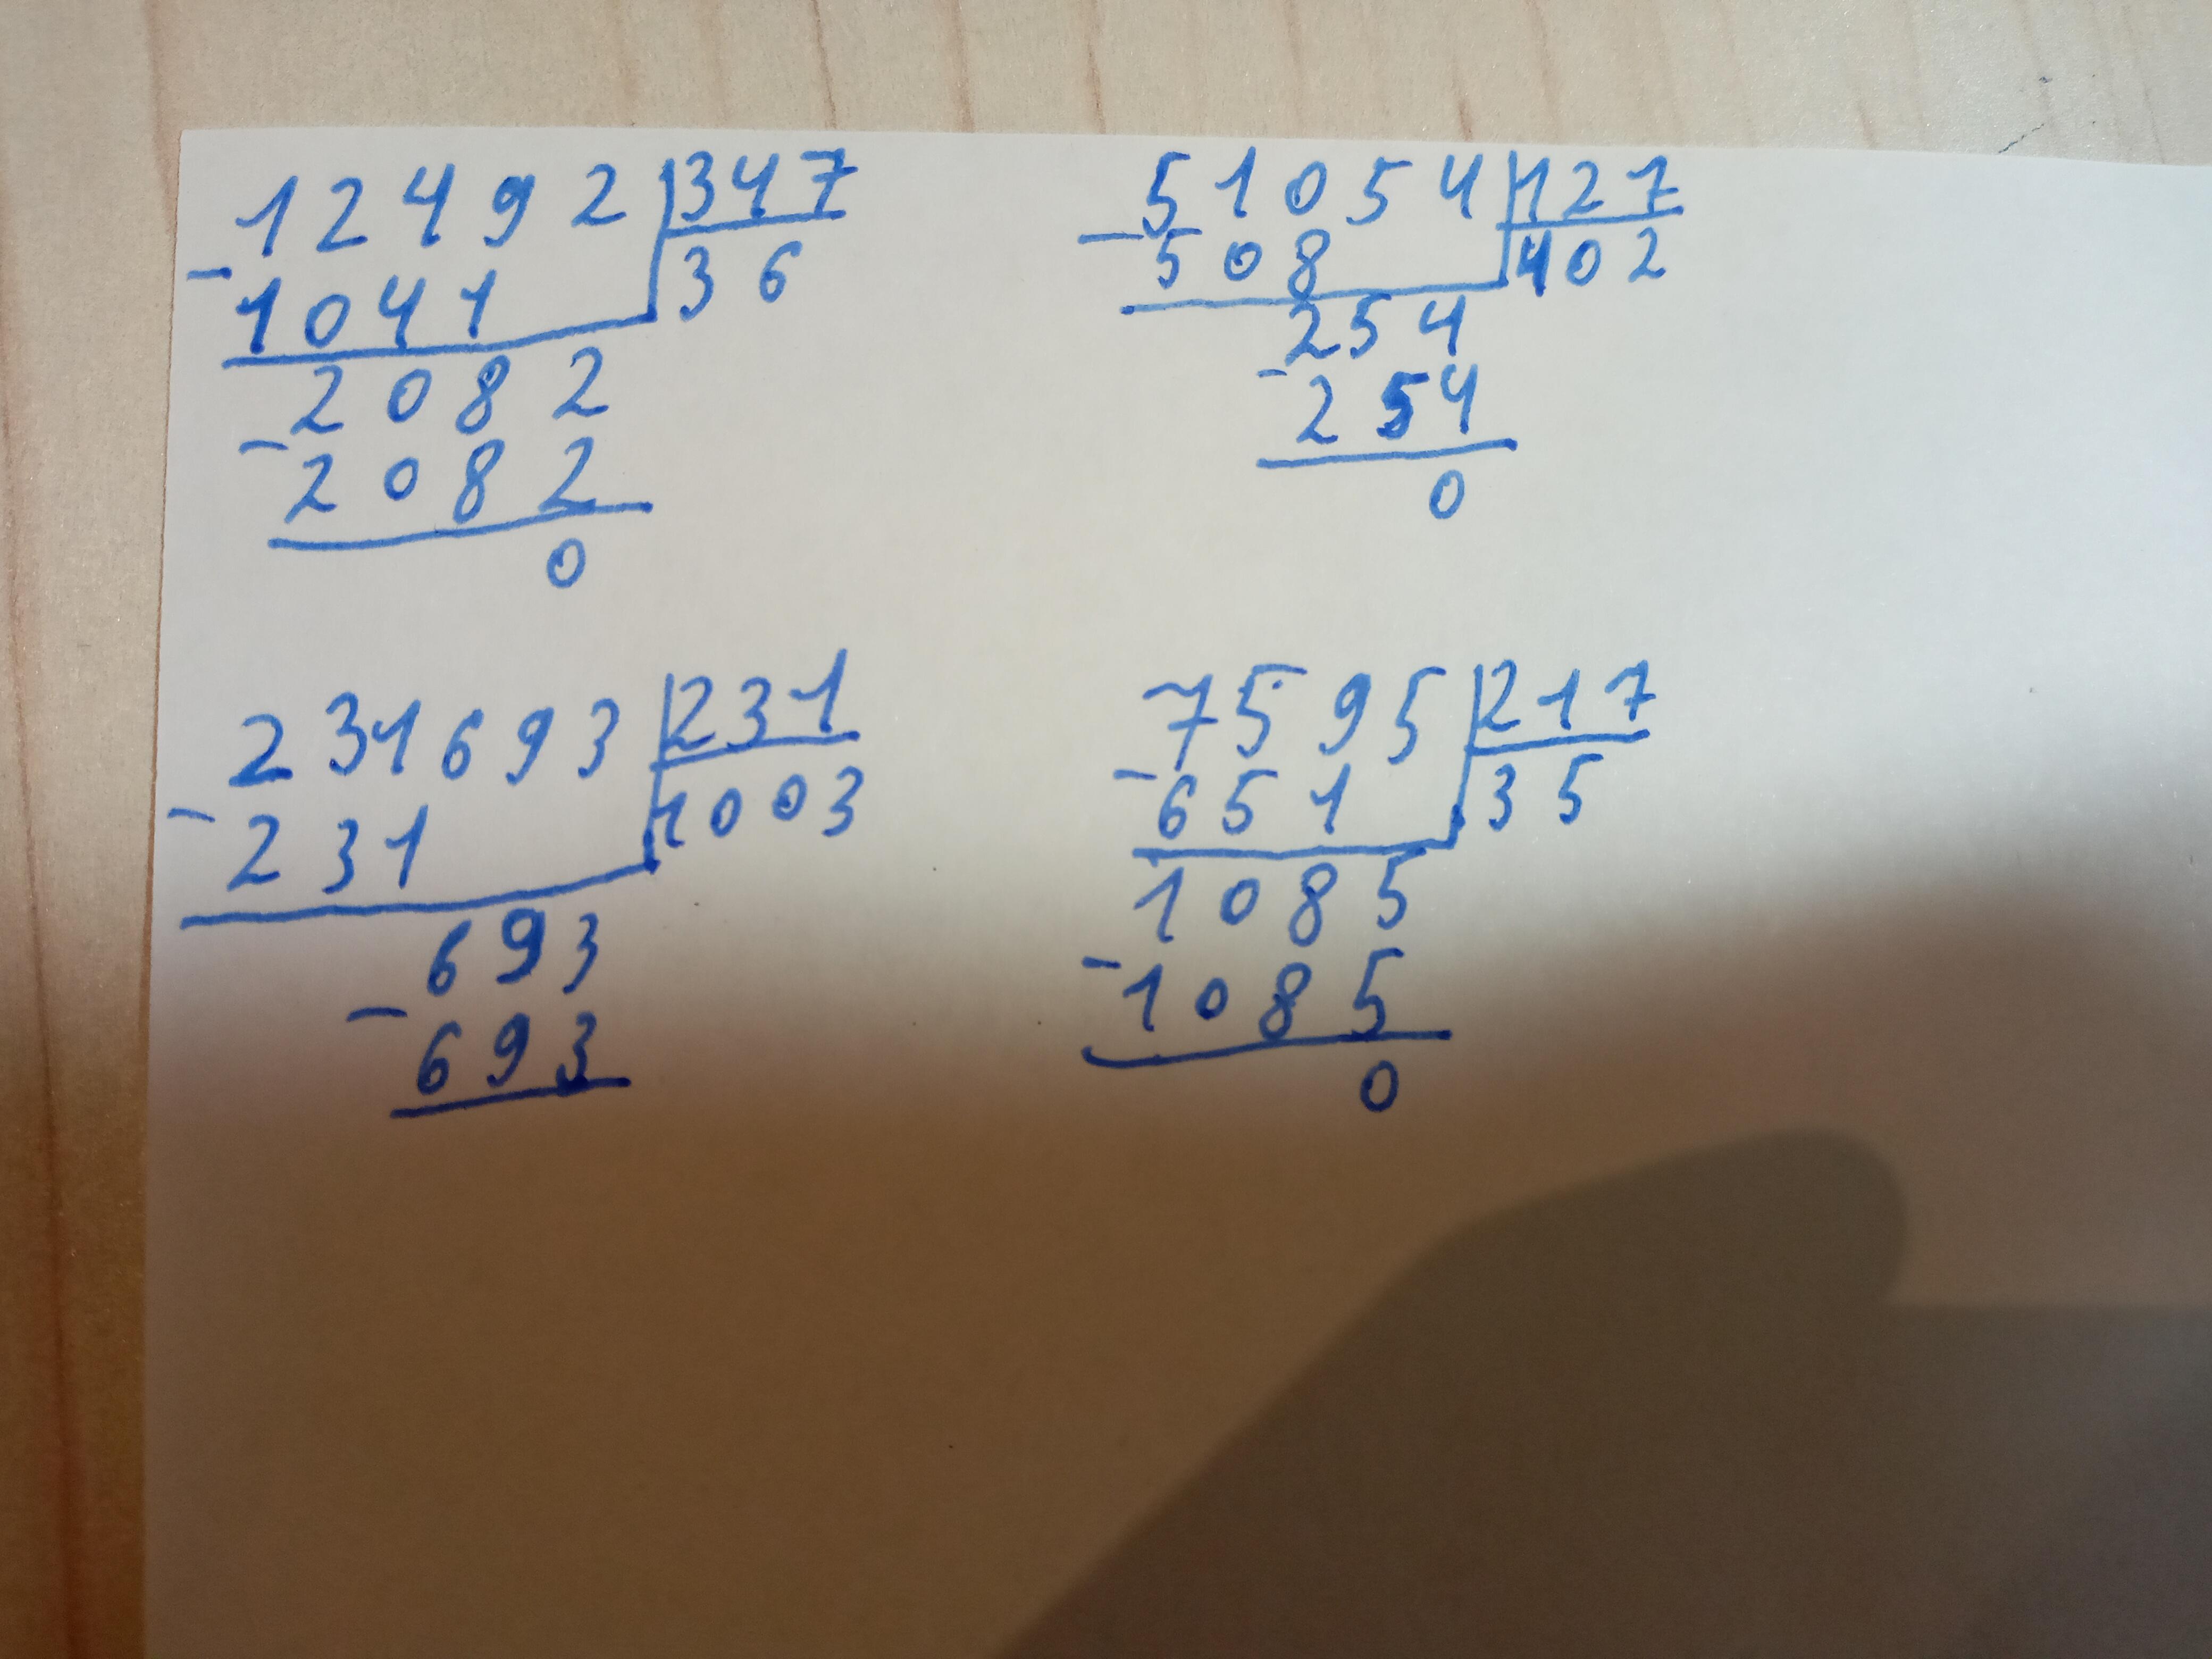 12492 347
- 1041 36
2082
- 2082
0
51054 127
- 508 402
254
- 254
0
231693 231
- 231 1003
693
- 693
7595 217
- 651 35
1085
- 1085
0